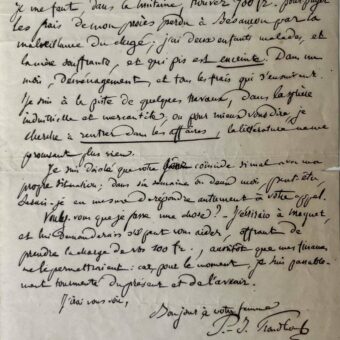 je me fait, dans la huitaine, trouver 700 fr. pour payer
les frais de mon procès perdu à Besançon par la
malveillance du clergé; j'ai deux enfants malades, et
la mère souffrante, et qui pis est enceinte. Dans un
mois, déménagement, et tous les frais qui s'ensuivent.
Je suis à la piste de quelques travaux, dans la sphère
industrielle et mercantile, ou pour mieux vous dire, je
cherche à rentrer dans les affaires, la littérature ne me
plus rien.
Je suis désolé que votre coïncide si mal avec ma
propre situation; dans six semaines ou deux mois, peut-être,
serais-je en mesure de répondre autrement à votre appel.
Voulez vous que je fasse une chose? J'écrirais à
et lui demanderais s'il peut vous aider, offrant de
prendre la charge de vos 100 fr., aussitôt que mes finances
me le permettraient: car, pour le moment, je suis passable-
ment tourmenté du présent et de l'avenir.
J'irai vous voir,
Bonjour à votre femme
P.-J. Proudhon